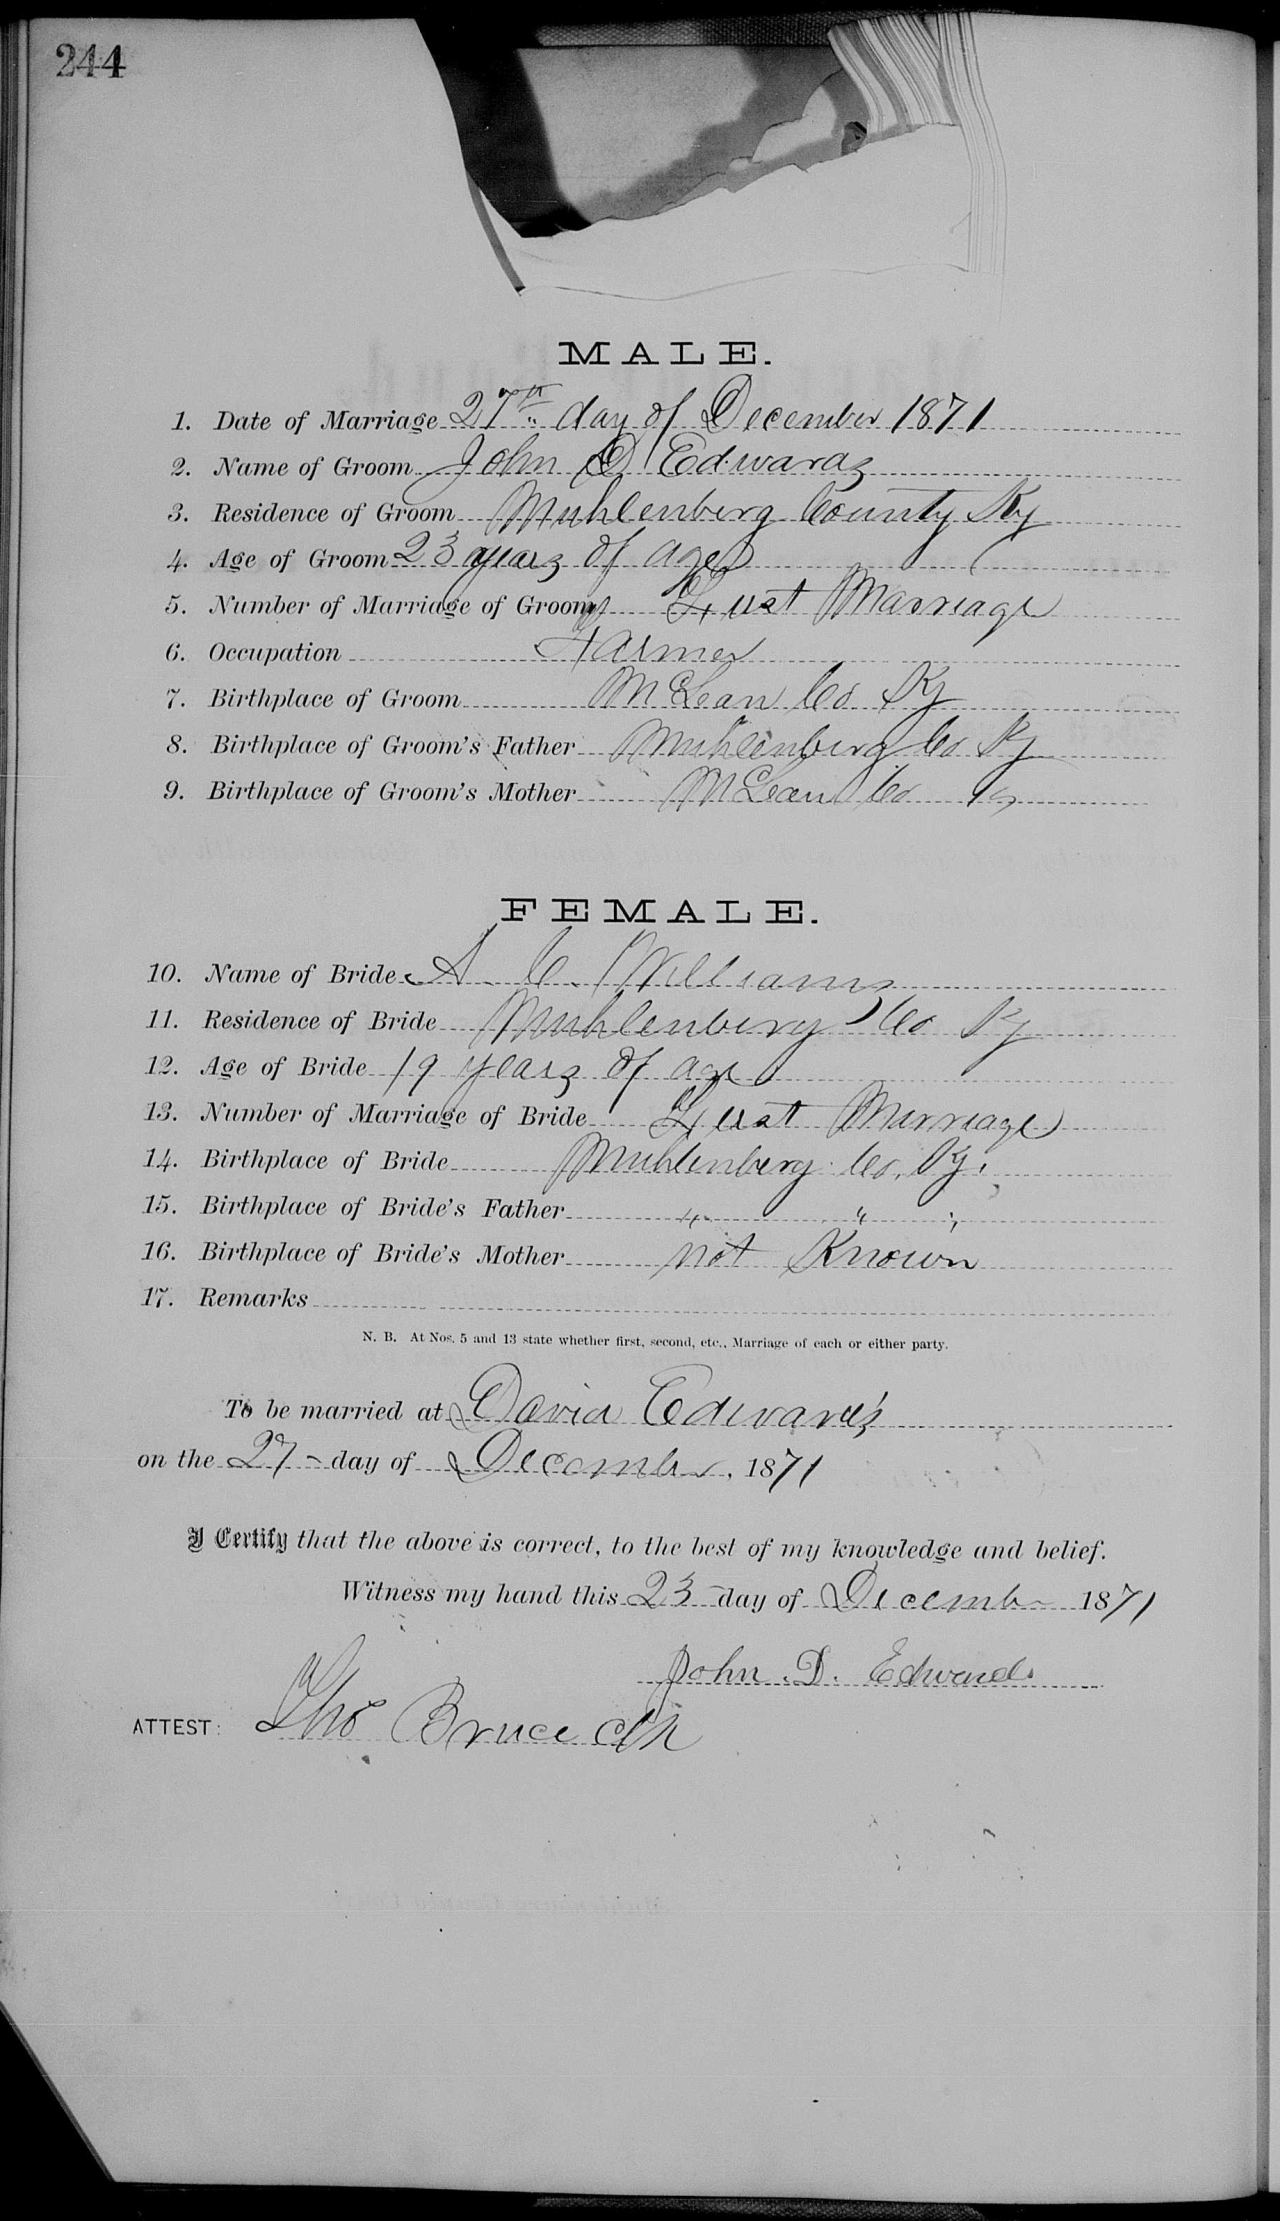 244
MALE.
1. Date of Marriage 27th day of December 1871
2. Name of Groom John D Edwards
3. Residence of Groom Muhlenberg County Ky
4. Age of Groom 23 years of age
5. Number of Marriage of Groom First Marriage
6. Occupation Farmer
7. Birthplace of Groom McLean Co Ky
8. Birthplace of Groom's Father Muhlenberg Co Ky
9. Birthplace of Groom's Mother McLean Co Ky
FEMALE.
10. Name of Bride A. C. Williams
11. Residence of Bride Muhlenberg Co Ky
12. Age of Bride 19 years of age
13. Number of Marriage of Bride First Marriage
14. Birthplace of Bride Muhlenberg Co. Ky.
15. Birthplace of Bride's Father " " "
16. Birthplace of Bride's Mother not Known
17. Remarks
N. B. At Nos. 5 and 13 state whether first, second, etc., Marriage of each or either party.
To be married at David Edward's
on the 27 - day of December, 1871
I Certify that the above is correct, to the best of my knowledge and belief.
Witness my hand this 23 - day of December 1871
John. D. Edwards
ATTEST: Tho Bruce Clk